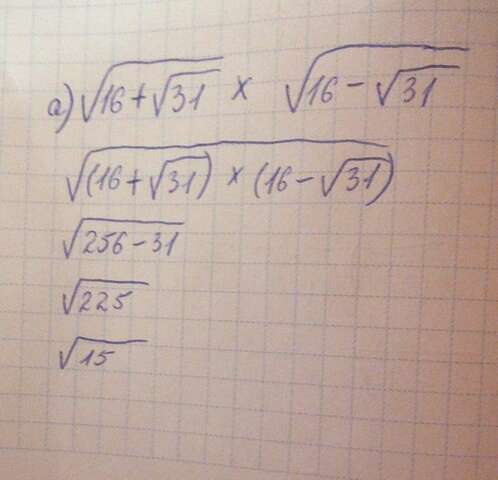 a) √(16+√31) × √(16-√31)
√((16+√31) × (16-√31))
√(256-31)
√225
√15